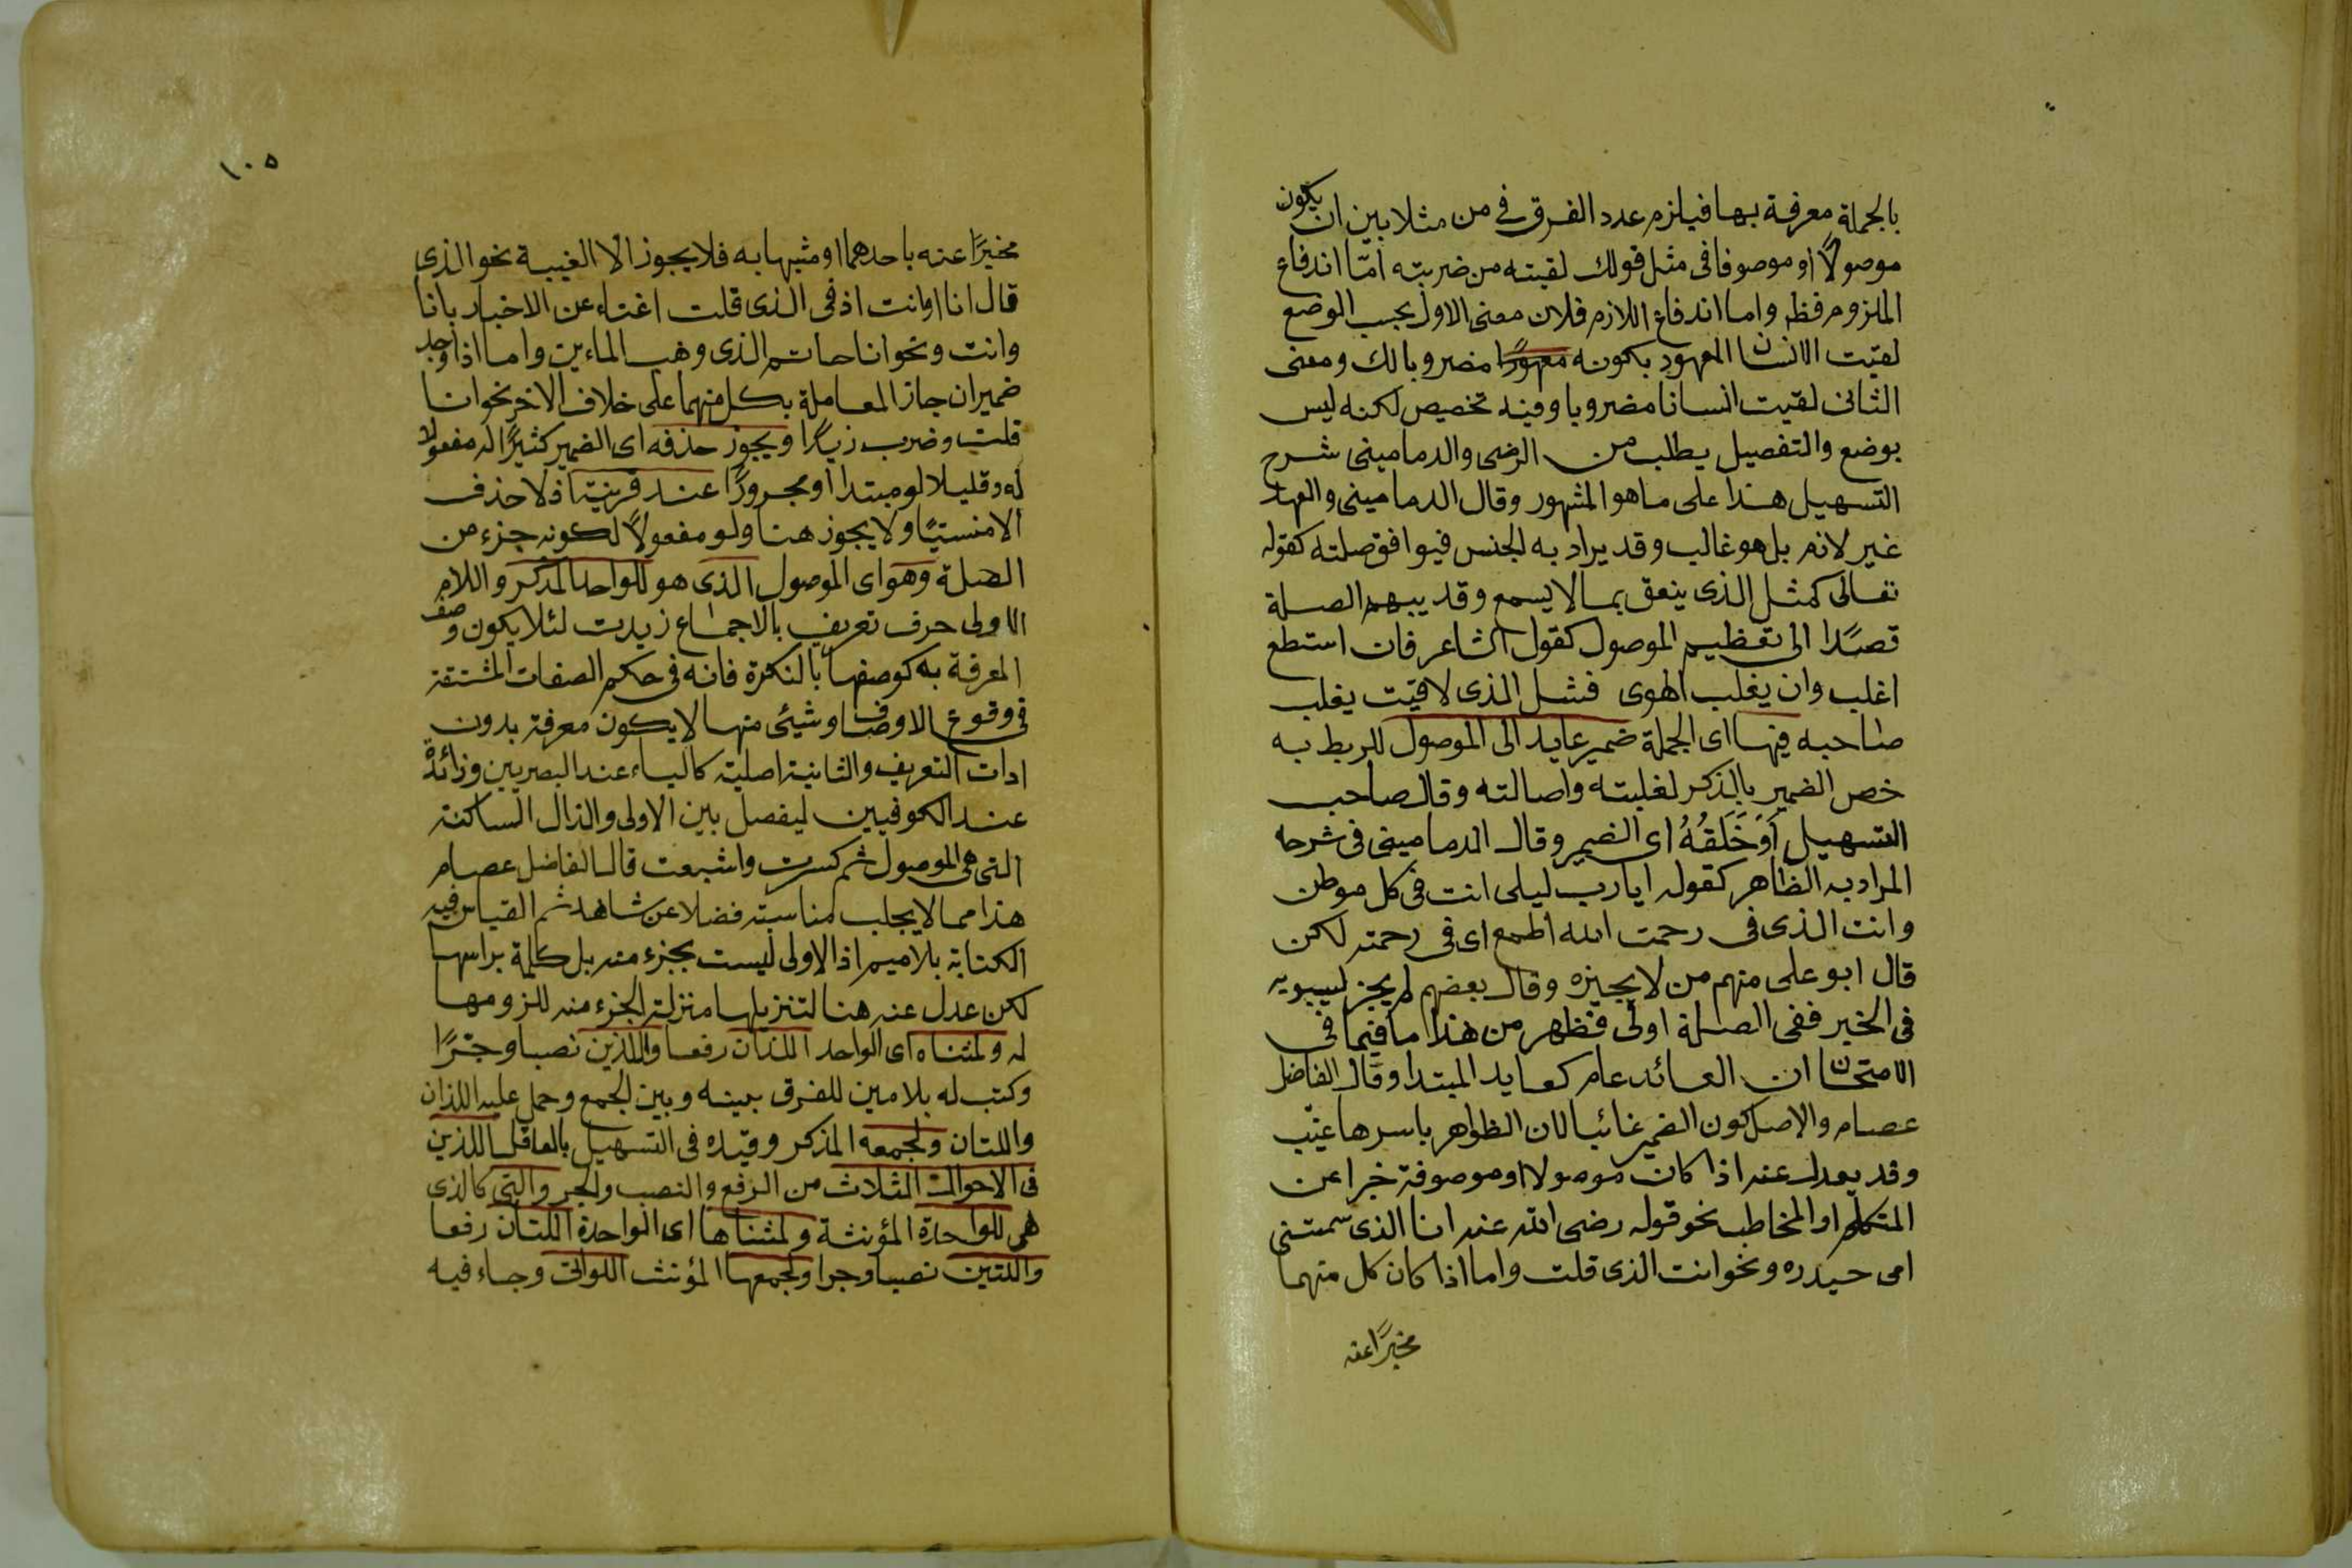 بالجملة معرفة بها فيلزم عدد الفرق في من مثلا بين ان يكون
موصولاً او موصوفا فى مثل قولك لقيته من ضربته امّا اندفاع
الملزوم فظ واما اندفاع اللازم فلان معنى الاول بحسب الوضع
لقيت الانسان المعهود بكونه معهودًا مضروبا لك ومعنى
الثانى لقيت انسانا مضروبا وفيه تخصيص لكنه ليس
بوضع والتفصيل يطلب من الرضى والدمامينى شرح
التسهيل هذا على ما هو المشهور وقال الدمامينى والعهد
غير لازم بل هو غالب وقد يراد به الجنس فيوافق صلته كقوله
تعالى كمثل الذى ينعق بما لا يسمع وقد يبهم الصلة
قصدًا الى تعظيم الموصول كقول الشاعر فان استطع
اغلب وان يغلب الهوى فمثل الذى لاقيت يغلب
صاحبه فيها اى الجملة ضمير عايد الى الموصول للربط به
خص الضمير بالذكر لغلبته واصالته وقال صاحب
التسهيل اَوْ خَلَفُهُ اى الضمير وقال الدمامينى فى شرحه
المراد به الظاهر كقوله ايا رب ليلى انت فى كل موطن
وانت الذى فى رحمت الله اطمع اى فى رحمته لكن
قال ابو على منهم من لا يجيزه وقال بعضهم لم يجز لسيبويه
فى الخبر ففى الصلة اولى فظهر من هذا ما فيما فى
الامتحان ان العائد عام كعايد المبتدا وقال الفاضل
عصام والاصل كون الضمير غائبا لان الظواهر باسرها غيّب
وقد يعدل عنه اذا كان موصولا او موصوفة خبرا عن
المتكلم او المخاطب نحو قوله رضى الله عنه انا الذى سمتنى
امى حيدره ونحو انت الذى قلت واما اذا كان كل منهما
مخبرًا عنه
١٠٥
مخبرًا عنه باحدهما او مشبها به فلا يجوز الا الغيبة نحو الذى
قال انا او انت اذ فى الذى قلت اغناء عن الاخبار بانا
وانت ونحو انا حاتم الذى وهب المائين واما اذا وجد
ضميران جاز المعاملة بكل منهما على خلاف الاخر نحو انا
قلت وضرب زيدًا ويجوز حذفه اى الضمير كثيرًا لو مفعولا
له وقليلا لو مبتدا او مجرورًا عند قرينة اذ لا حذف
الا منسيًا ولا يجوز هنا ولو مفعولاً لكونه جزء من
الصلة وهو اى الموصول الذى هو للواحد المذكر واللام
الاولى حرف تعريف بالاجماع زيدت لئلا يكون وصف
المعرفة به كوصفها بالنكرة فانه فى حكم الصفات المشتقة
فى وقوع الاوصاف وشيئى منها لا يكون معرفة بدون
ادات التعريف والثانية اصلية كالياء عند البصريين وزائدة
عند الكوفيين ليفصل بين الاولى والذال الساكنة
التى هى الموصول ثم كسرت واشبعت قال الفاضل عصام
هذا مما لا يجلب مناسبته فضلا عن شاهد ثم القياس فيه
الكتابة بلاميم اذ الاولى ليست بجزء منه بل كلمة براسها
لكن عدل عنه هنا لتنزيلها منزلة الجزء منه للزومها
له ولمثناه اى الواحد اللذان رفعا واللذين نصبا وجرًا
وكتب له بلامين للفرق بينه وبين الجمع وحمل عليه اللذان
واللتان ولجمعه المذكر وقيده فى التسهيل بالعاقل اللذين
فى الاحوال الثلاث من الرفع والنصب والجر والتى كالذى
هى للواحدة المؤنثة ولمثناها اى الواحدة اللتان رفعا
واللتين نصبا وجرا ولجمعها المؤنث اللواتى وجاء فيه